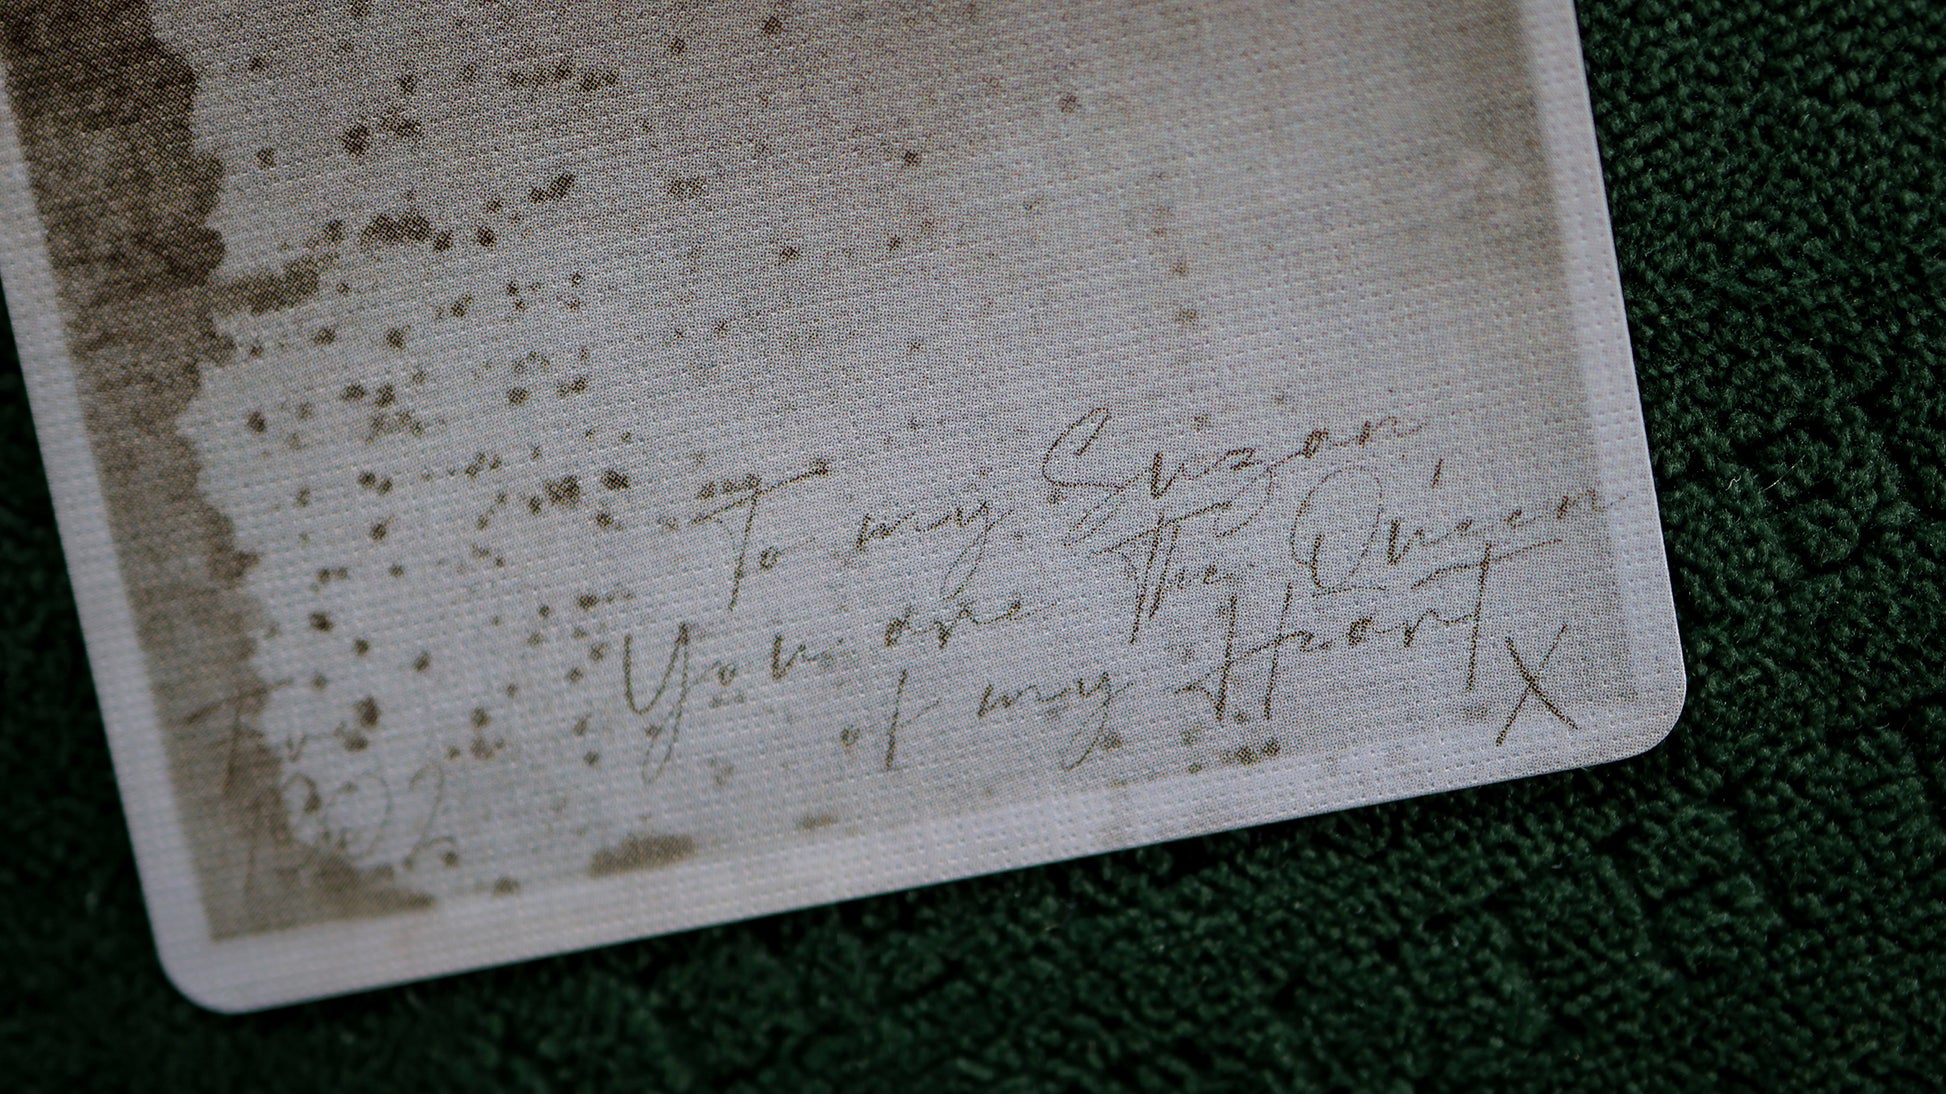 To my Suzon
You are The Queen
of my Heart
X